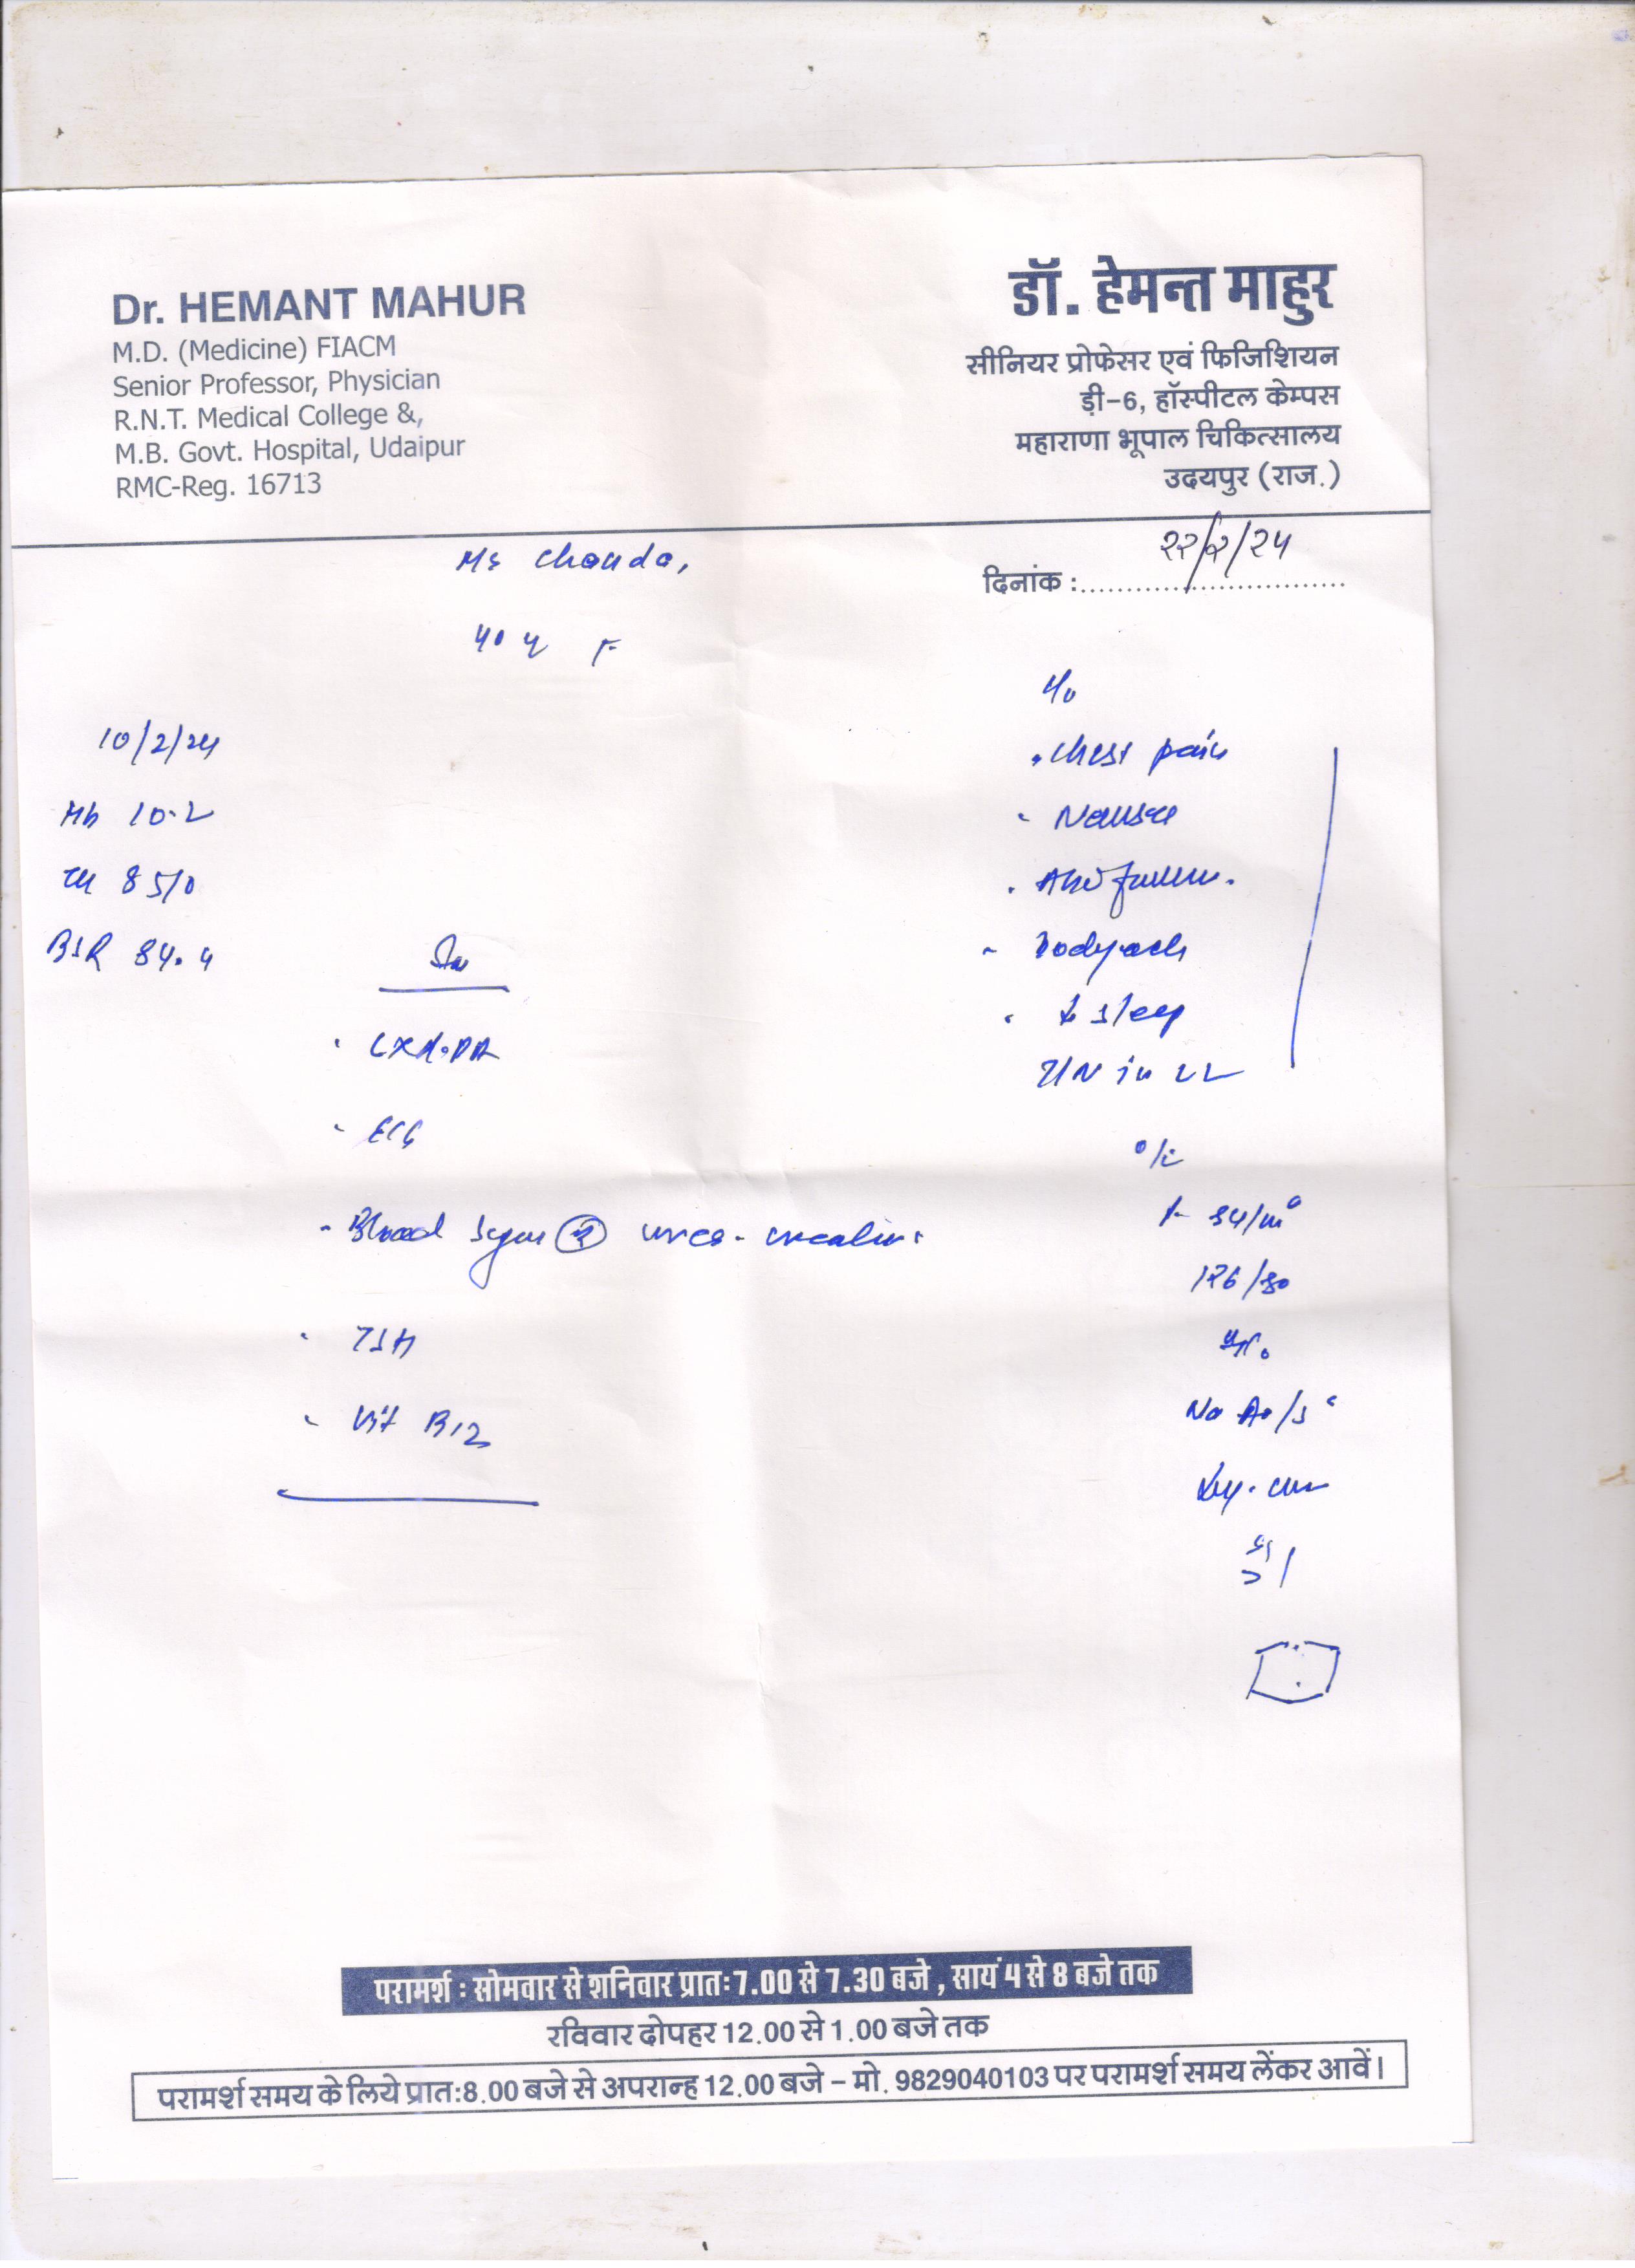 Dr. HEMANT MAHUR
M.D. (Medicine) FIACM
Senior Professor, Physician
R.N.T. Medical College &,
M.B. Govt. Hospital, Udaipur
RMC-Reg. 16713
डॉ. हेमन्त माहुर
सीनियर प्रोफेसर एवं फिजिशियन
डी-6, हॉस्पीटल केम्पस
महाराणा भूपाल चिकित्सालय
उदयपुर (राज.)
दिनांक :
Ms Chanda,
40 y F
10/2/24
Hb 10.2
BSR 84.4
· CXR.PA
- ECG
- Blood Sugar urea - creatinine
· TSH
- Vit B12
c/o
· chest pain
- Nausea
- Bodyach
· sleep
T/N in LL
o/e
126/80
परामर्श : सोमवार से शनिवार प्रातः 7.00 से 7.30 बजे , सायं 4 से 8 बजे तक
रविवार दोपहर 12.00 से 1.00 बजे तक
परामर्श समय के लिये प्रातः8.00 बजे से अपरान्ह 12.00 बजे – मो. 9829040103 पर परामर्श समय लेंकर आवें।